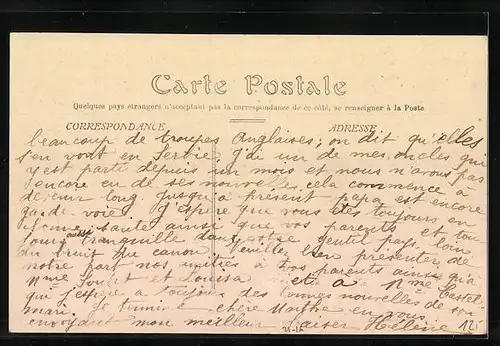 Carte Postale
Quelques pays étrangers n'acceptant pas la correspondance de ce côté, se renseigner à la Poste
CORRESPONDANCE
ADRESSE
beaucoup de troupes Anglaises; on dit qu'elles
s'en vont en Serbie j'ai un de mes oncles qui
y est parti depuis un mois et nous n'avons pas
encore eu de ses nouvelles cela commence à
devenir long jusqu'à présent papa est encore
garde voie J'espère que vous êtes toujours en
bonne santé ainsi que vos parents et
aussi tranquille dans votre gentil pays loin
du bruit du canon Veuillez bien présenter de
notre part nos à vos parents ainsi qu'à
Mme et Louisa et à Mme
qui a toujours des bonnes nouvelles de son
mari. Je termine chère en vous
envoyant mon meilleur baiser Hélène
12